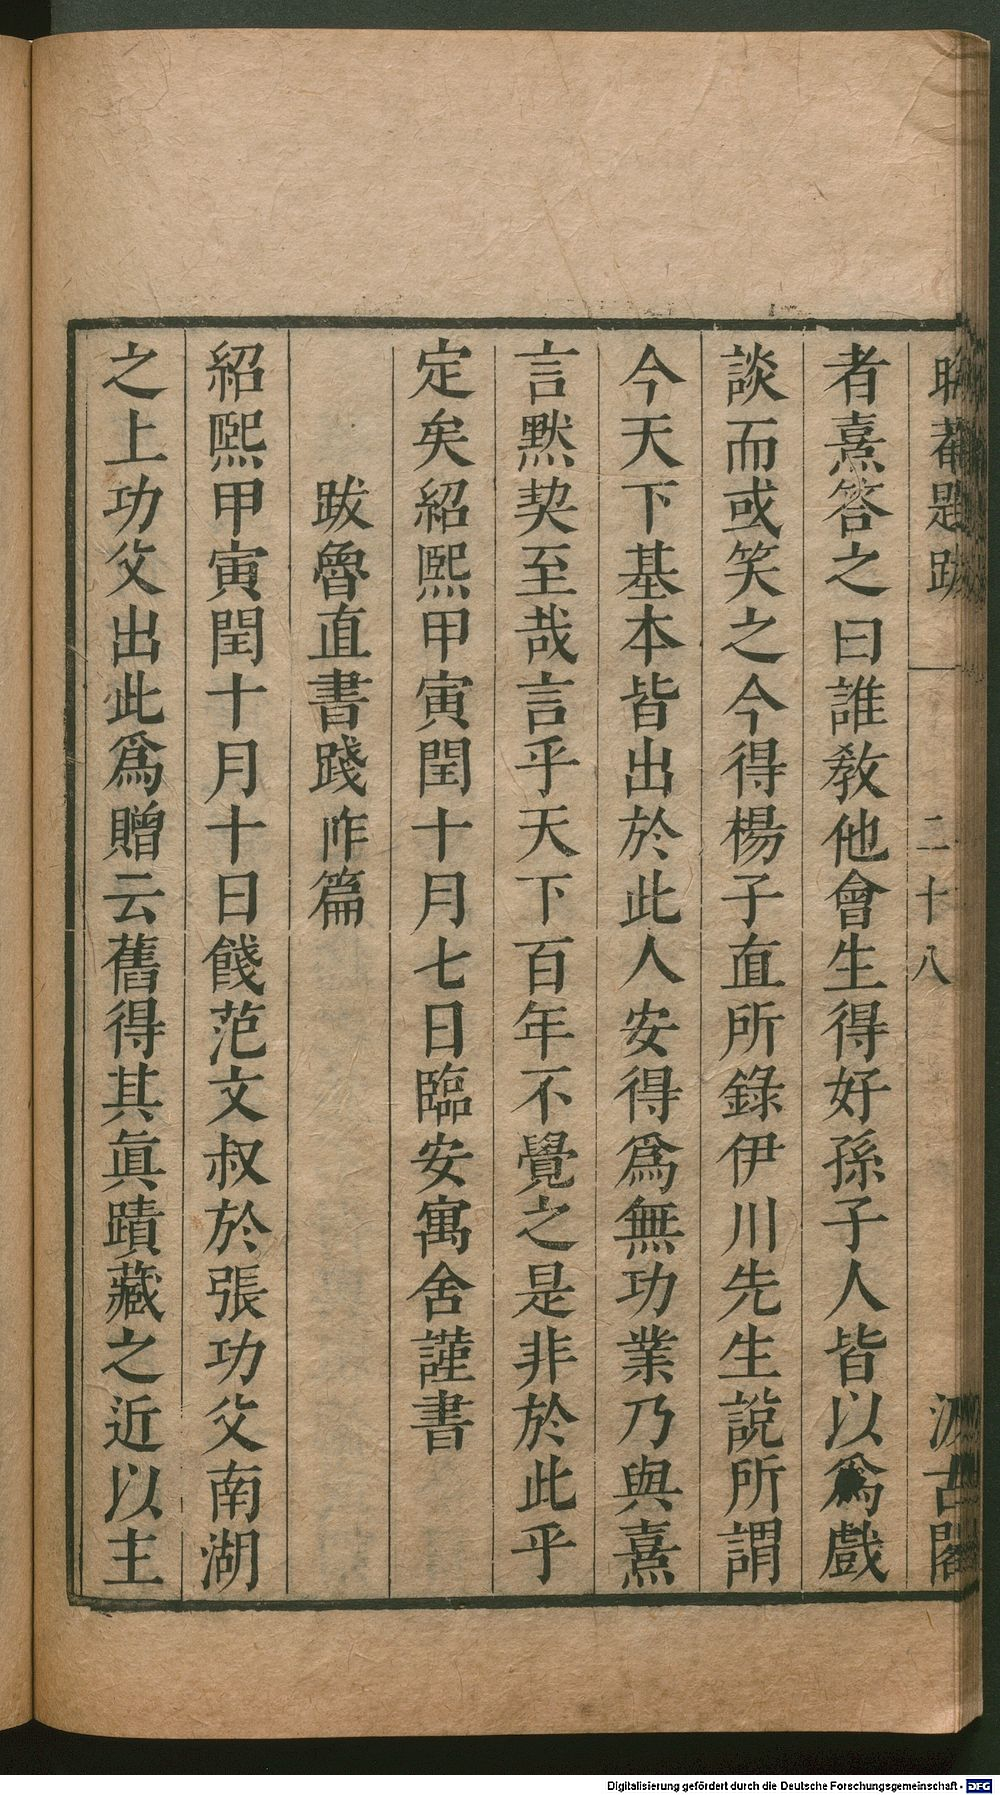 晦菴題跋
二十八
汲古閣
者熹答之曰誰敎他會生得好孫子人皆以爲戲
談而或笑之今得楊子直所錄伊川先生說所謂
今天下基本皆出於此人安得爲無功業乃與熹
言默契至哉言乎天下百年不覺之是非於此乎
定矣紹熙甲寅閏十月七日臨安寓舍謹書
跋魯直書踐阼篇
紹熙甲寅閏十月十日餞范文叔於張功父南湖
之上功父出此爲贈云舊得其眞蹟藏之近以主
Digitalisierung gefördert durch die Deutsche Forschungsgemeinschaft - DFG